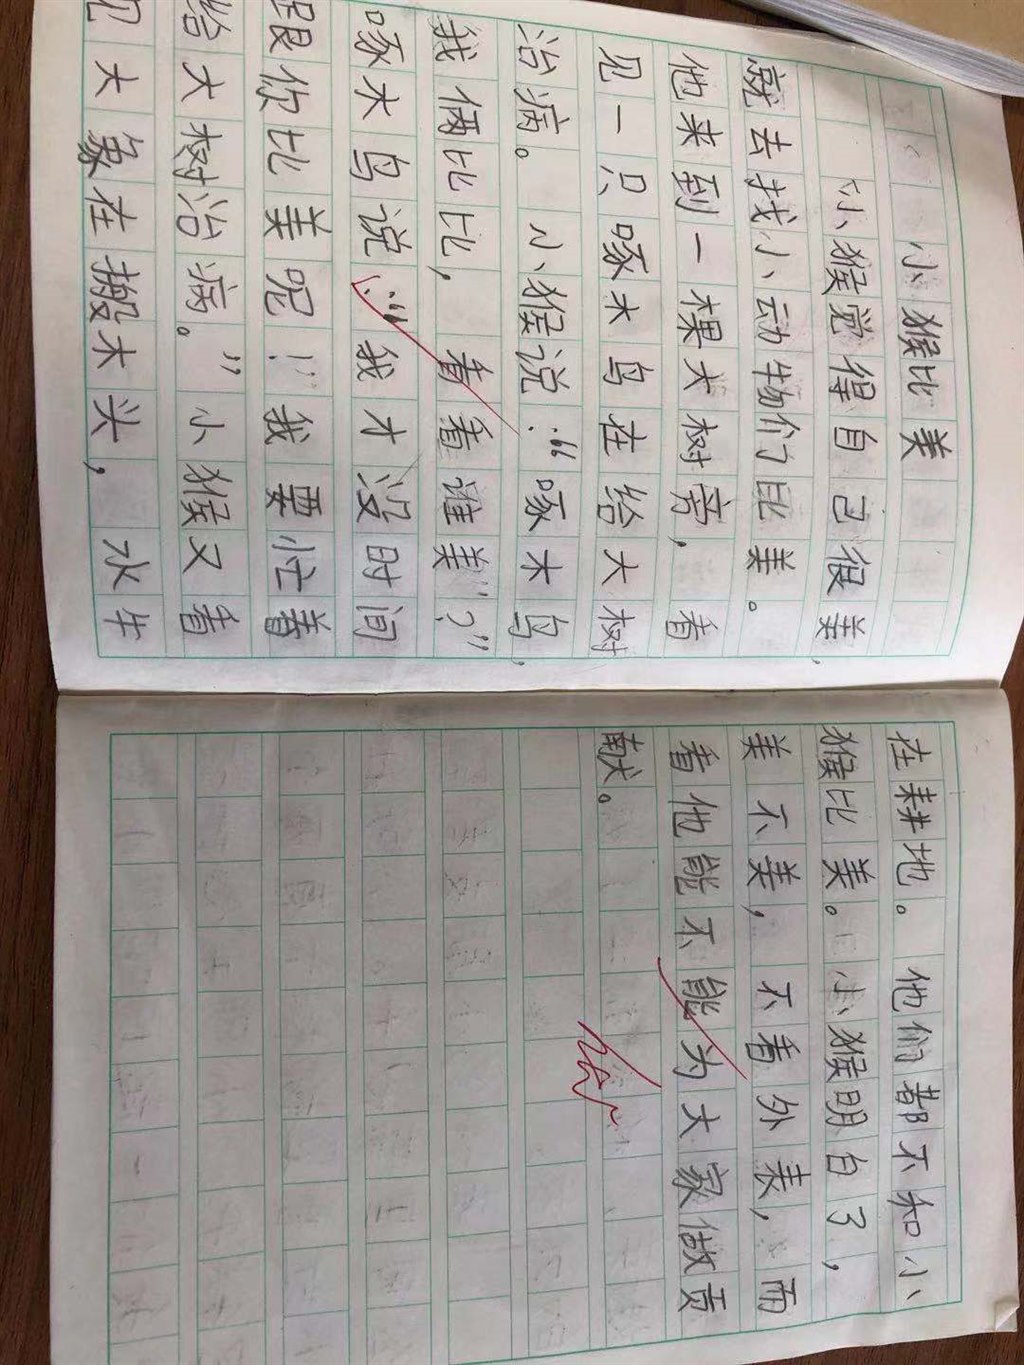 小猴比美
小猴觉得自己很美，
就去找小动物们比美。
他来到一棵大树旁，看
见一只啄木鸟在给大树
治病。小猴说：“啄木鸟，
我俩比比，看看谁美”？”
啄木鸟说：“我才没时间
跟你比美呢！”我要忙着
给大树治病。”小猴又看
见大象在搬木头，水牛
在耕地。他们都不和小
猴比美。小猴明白了，
美不美，不看外表，而
看他能不能为大家做贡
献。